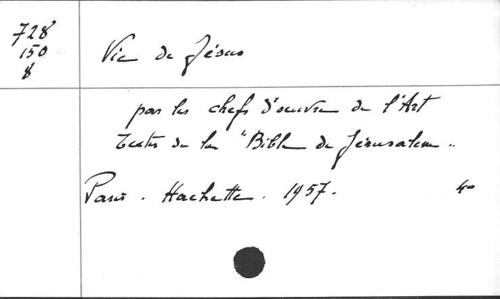 728
150
8
Vie de Jésus
par les chefs d'oeuvre de l'Art
textes de la "Bible de Jérusalem"
Paris. Hachette. 1957. 4°